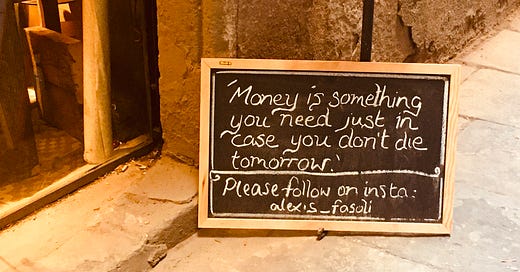 'Money is something
you need just in
case you don't die
tomorrow.'
Please follow on insta:
alexis_fasoli